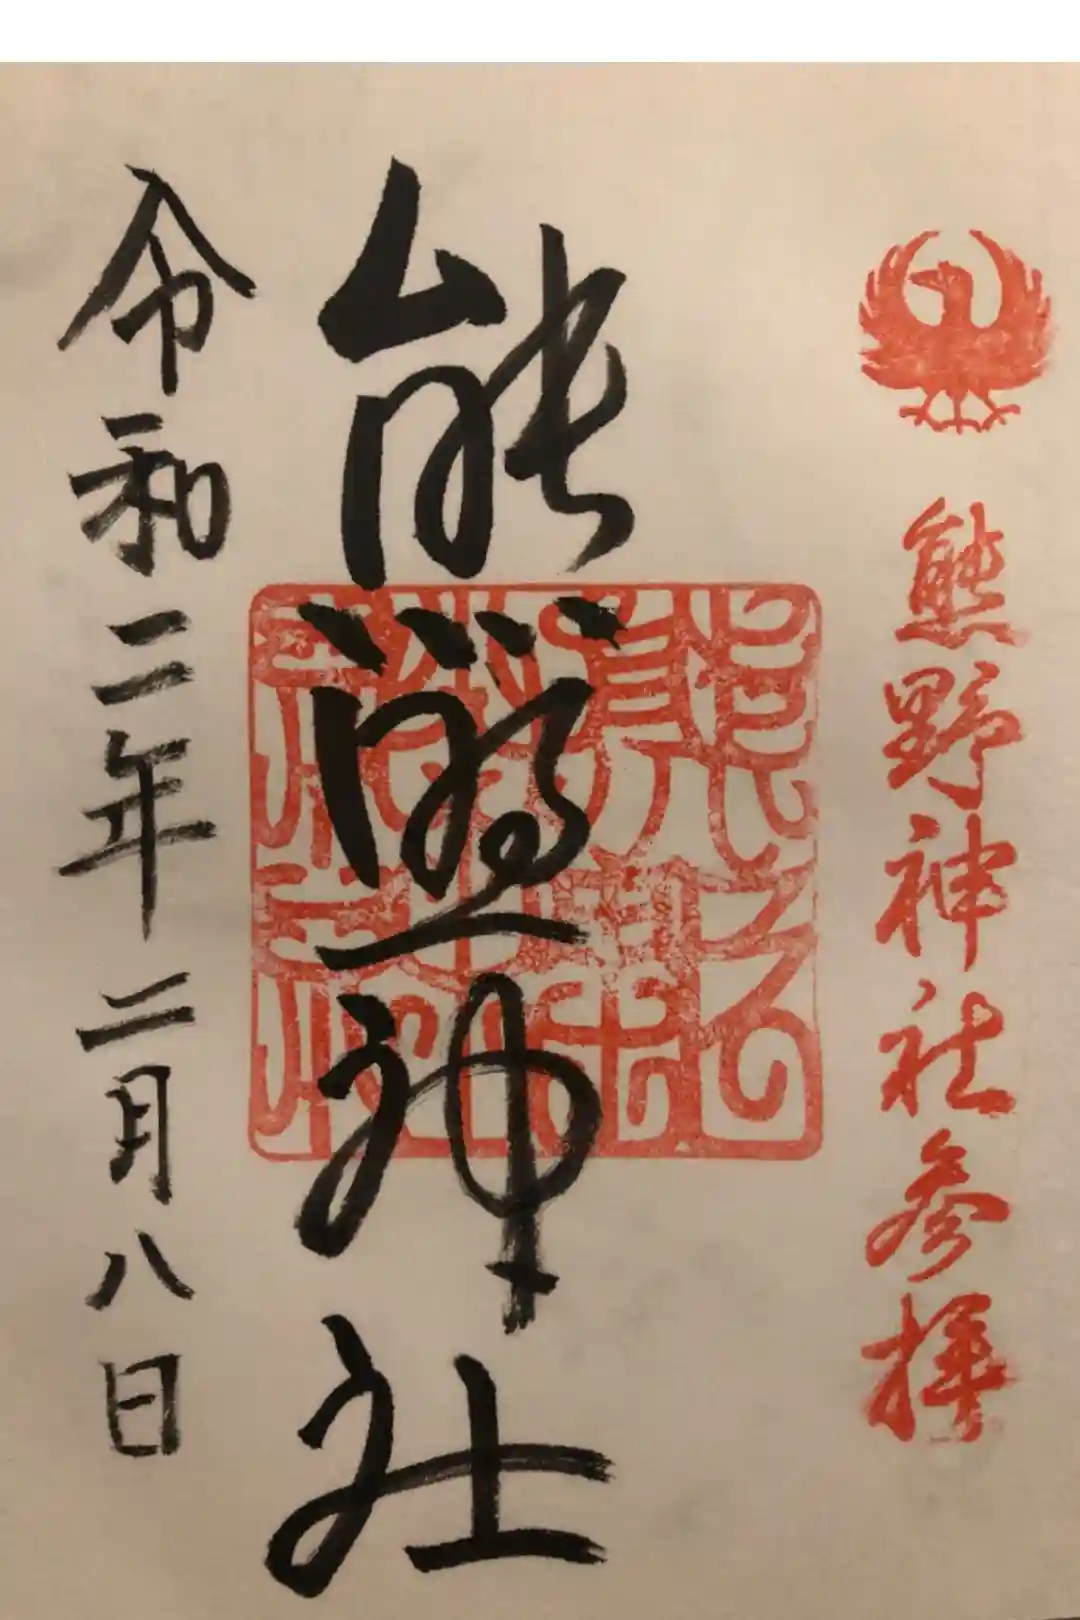 熊野神社参拝
熊野神社
令和二年二月八日